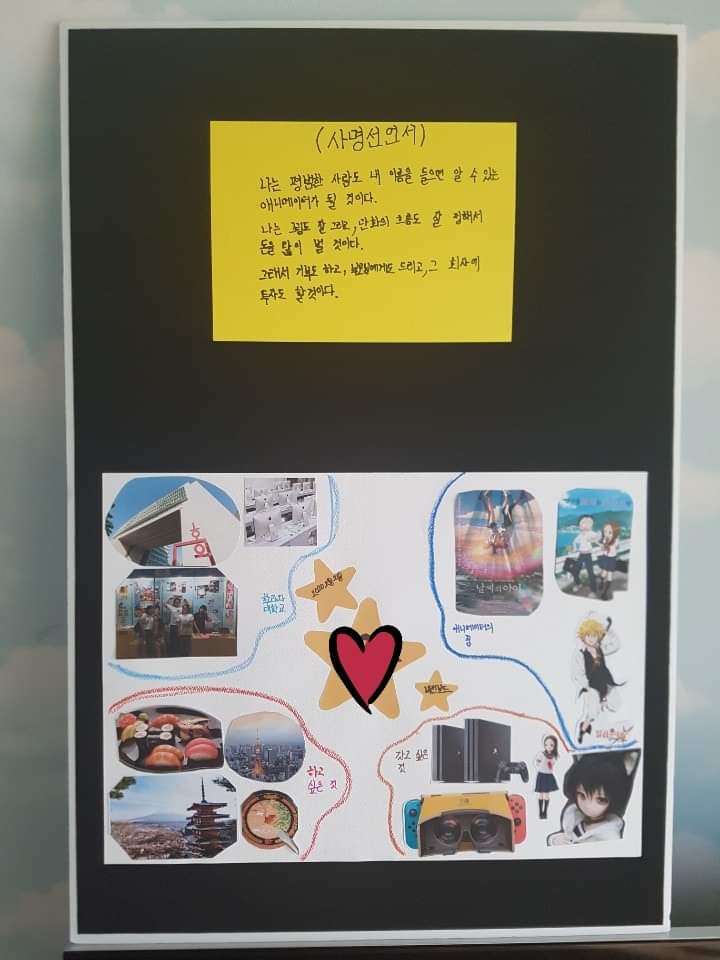 (사명선언서)
나는 평범한 사람도 내 이름을 들으면 알 수 있는
애니메이터가 될 것이다.
나는 그림도 잘 그리고, 만화의 흐름도 잘 정해서
돈을 많이 벌 것이다.
그래서 기부도 하고, 부모님에게도 드리고, 그 회사에
투자도 할것이다.
학교와
대학교
애니메이터의
꿈
날씨의 아이
하고
싶은 것
갖고 싶은
것